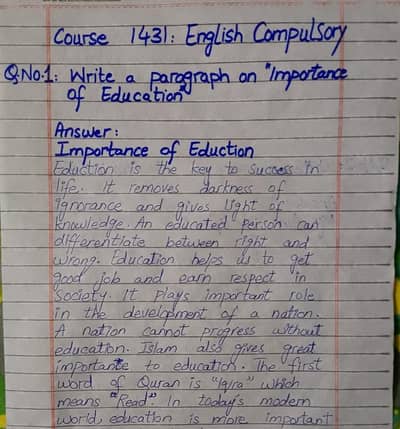 Course 1431: English Compulsory
QNo.1: Write a paragraph on "Importance
of Education"
Answer:
Importance of Eduction
Eduction is the key to success in
life. It removes darkness of
ignorance and gives light of
knowledge. An educated person can
differentiate between right and
wrong. Education helps us to get
good job and earn respect in
society. It plays important role
in the development of a nation.
A nation cannot progress without
education. Islam also gives great
importante to education. The first
word of Quran is "Iqra" which
means "Read". In today's modern
world, education is more important